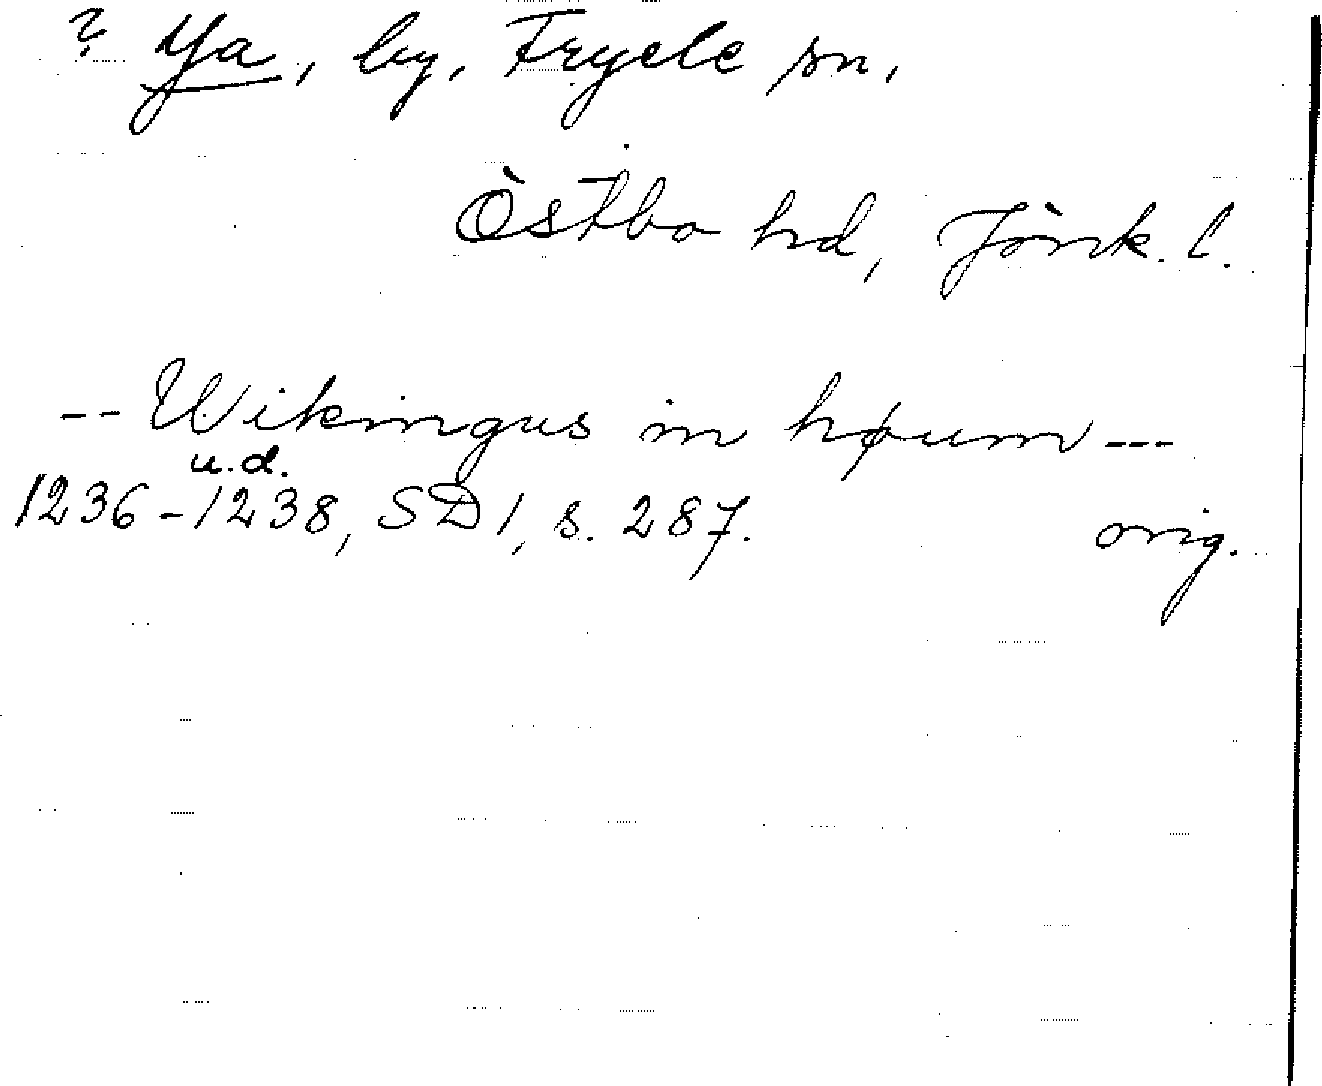 ? Ya, by, Fryele sn,
Östbo hd, Jönk. l.
-- Wikingus in høum ---
u.d.
1236-1238, SD 1, s. 287. orig.